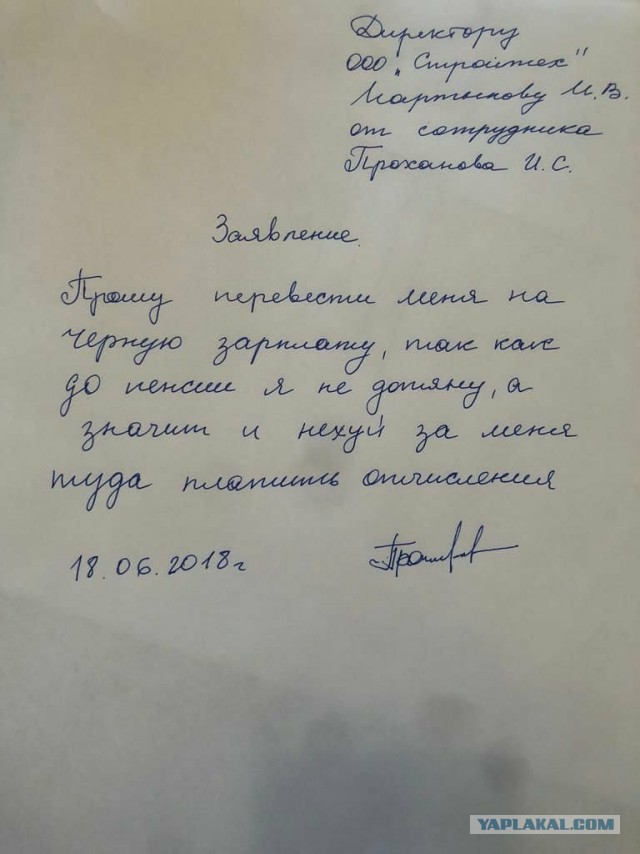 Директору
ООО „Стройтех"
Мартынову И.В.
от сотрудника
Проханова И.С.
Заявление.
Прошу перевести меня на
черную зарплату, так как
до пенсии я не дотяну, а
значит и нехуй за меня
туда платить отчисления
18.06.2018г
YAPLAKAL.COM